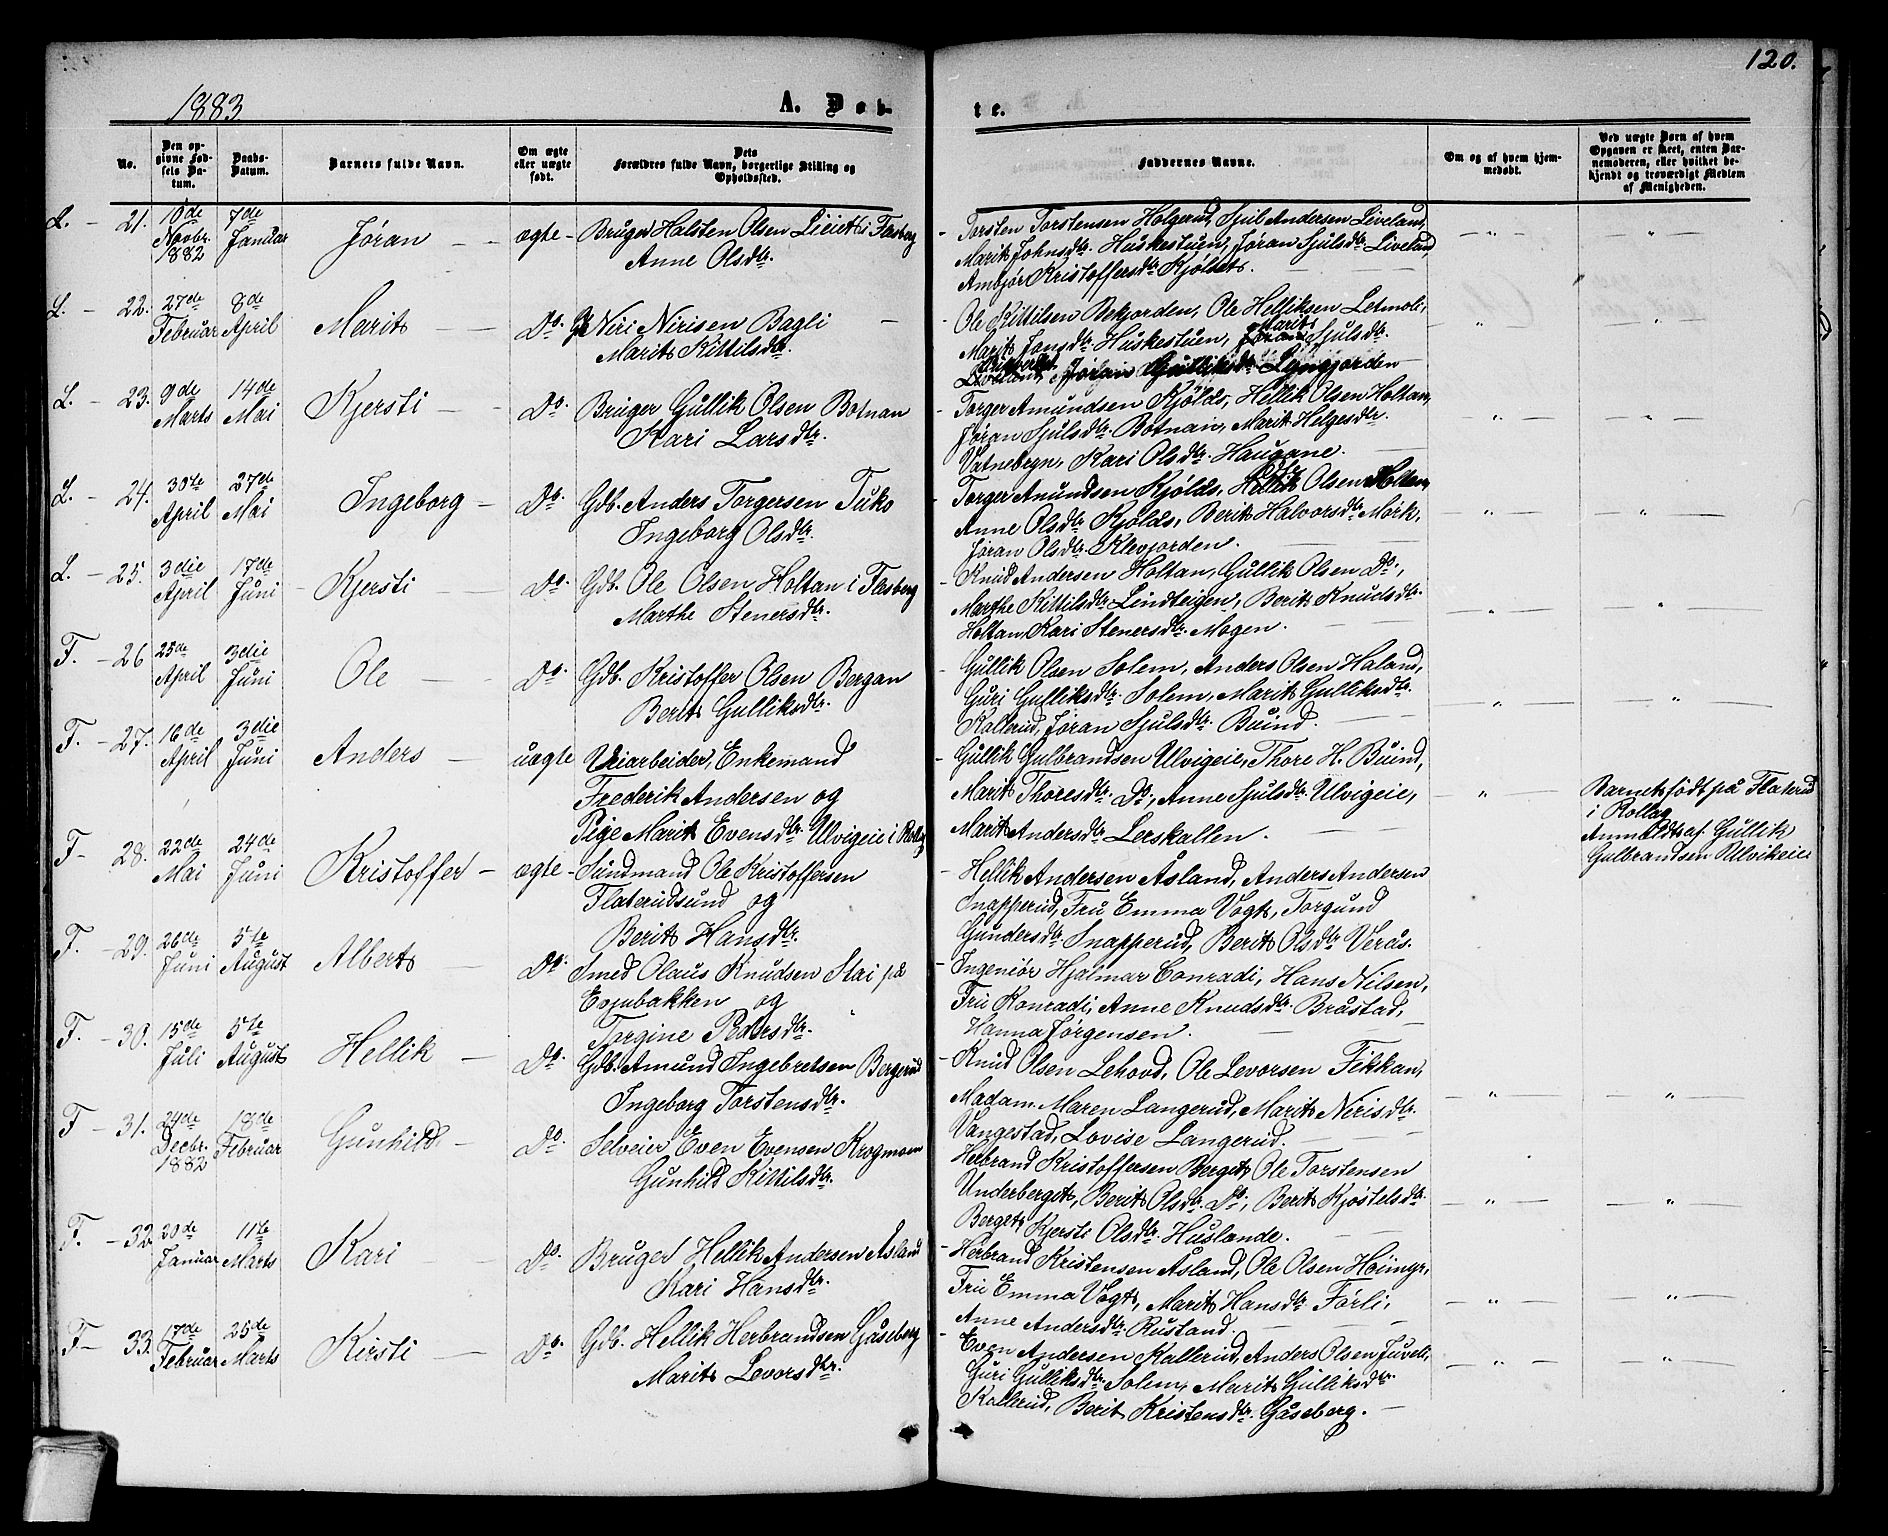 120.
1883
A. Døb-
te.
No.
Den op-
givne Fød-
sels Da-
tum.
Daabs-
Datum.
Barnets fulde Navn.
Om ægte
eller uægte
født.
Dets
Forældres fulde Navn, borgerlige Stilling og
Opholdssted.
Faddernes Navne.
Om og af hvem hjem-
medøbt.
Ved uægte Børn af hvem
Opgaven er skeet, enten Bar-
nemoderen, eller hvilket be-
kjendt og troværdigt Medlem
af Menigheden.
L. - 21. 10de Novbr. 1882 7de Januar Jøran ægte
Bruger Halsten Olsen i Flesberg
Anne Olsdtr.
Torsten Torstensen Holgerud, Sjul Andersen Liveland,
Marit Johnsdtr. Huskestuen, Jøran Sjulsdtr. Liveland,
Ambjør Kristoffersdtr. Kjølset.
L. - 22. 27de Februar 8de April Marit Do.
Niri Nirisen Bagli
Marit Kittilsdtr.
Ole Kittilsen Bekjorden, Ole Helliksen Letmoli,
Marit Jansdtr. Huskestuen, Marit Sjulsdtr.
Liveland, Jøran Gulliksdtr. Lyngjorden
L. - 23. 9de Marts 14de Mai Kjersti Do.
Bruger Gullik Olsen Botnan
Kari Larsdtr.
Torger Amundsen Kjølds, Hellik Olsen Holtan,
Jøran Sjulsdtr. Botnan, Marit Helgesdtr.
Vatnebryn, Kari Olsdtr. Haugane.
L. - 24. 30te April 27de Mai Ingeborg Do.
Gdb. Anders Torgersen Tuko
Ingeborg Olsdtr.
Torger Amundsen Kjølds, Olsen Holtan,
Anne Olsdtr. Kjølds, Berit Halvorsdtr. Mørk,
Jøran Olsdtr. Klevjorden.
L. - 25. 3die April 17de Juni Kjersti Do.
Gdb. Ole Olsen Holtan i Flesberg
Marthe Stenersdtr.
Knud Andersen Holtan, Gullik Olsen Do.,
Marthe Kittilsdtr. Lindteigen, Berit Knudsdtr.
Holtan, Kari Stenersdtr. Mogen.
F. - 26 25de April 3die Juni Ole Do.
Gdb. Kristoffer Olsen Bergan
Berit Gulliksdtr.
Gullik Olsen Solem, Anders Olsen Haland,
Guri Gulliksdtr. Solem, Marit Gulliksdtr.
Kallerud, Jøran Sjulsdtr. Buind.
F. - 27. 16de April 3die Juni Anders uægte
Veiarbeider, Enkemand
Frederik Andersen og
Pige Marit Evensdtr. Ulvigeie i Rollag
Gullik Gulbrandsen Ulvigeie, Thore H. Buind,
Marit Thoresdtr. Do., Anne Sjulsdtr. Ulvigeie,
Marit Andersdtr. Lerskallen.
Barnet født på Flaterud
i Rollag
Anmeldt af Gullik
Gulbrandsen Ulvikeie
F - 28. 22de Mai 24de Juni Kristoffer ægte
Sundmand Ole Kristoffersen
Flaterudsund og
Berit Hansdtr.
Hellik Andersen Åsland, Anders Andersen
Snapperud, Fru Emma Vogt, Torgund
Gundersdtr. Snapperud, Berit Olsdtr. Verås.
F. - 29. 26de Juni 5te August Albert Do.
Smed Olaus Knudsen Stai på
Evjubakken og
Torgine Pedersdtr.
Ingeniør Hjalmar Conradi, Hans Nilsen,
Fru Konradi, Anne Knudsdtr. Bråstad,
Hanna Jørgensen.
F - 30. 15de Juli 5te August Hellik Do.
Gdb. Amund Ingebretsen Bergerud
Ingeborg Torstensdtr.
Knud Olsen Lehovd, Ole Levorsen Fekkan,
Madam Maren Langerud, Marit Nirisdtr.
Vangestad, Lovise Langerud.
F - 31. 24de Decbr. 1882 18de Februar Gunhild Do.
Selveier Even Evensen Krogmoen
Gunhild Kittilsdtr.
Herbrand Kristoffersen Berget, Ole Torstensen
Underberget, Berit Olsdtr. Do., Berit Kjøstelsdtr.
Berget, Kjersti Olsdtr. Huslande.
F. - 32 20de Januar 11te Marts Kari Do.
Bruger Hellik Andersen Åsland
Kari Hansdtr.
Herbrand Kristensen Åsland, Ole Olsen Høimyr,
Fru Emma Vogt, Marit Hansdtr. Førli,
Anne Andersdtr. Rustand.
F - 33. 17de Februar 25de Marts Kirsti Do.
Gdb. Hellik Herbrandsen Gåseberg
Marit Levorsdtr.
Even Andersen Kallerud, Anders Olsen Juveli,
Guri Gulliksdtr. Solem, Marit Gulliksdtr.
Kallerud, Berit Kristensdtr. Gåseberg.